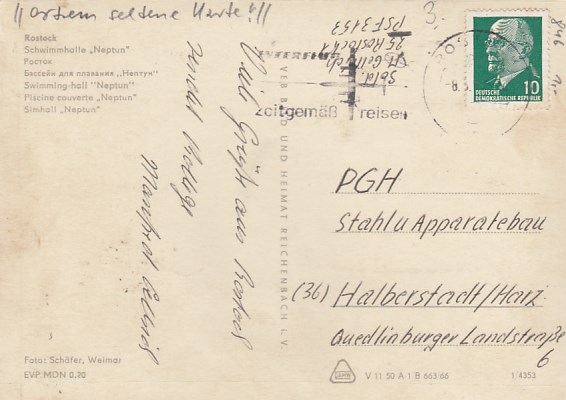 seltene Karte!"
Rostock
Schwimmhalle „Neptun"
Росток
Бассейн для плавания „Нептун"
Swimming-hall "Neptun"
Piscine couverte „Neptun"
Simhall „Neptun"
Viele Grüße aus Rostock
sendet
Manfred
Foto: Schäfer, Weimar
EVP MDN 0,20
VEB BILD UND HEIMAT REICHENBACH i. V.
3.
25 Rostock 1
PSF 3453
INTERFLUG
zeitgemäß reisen
DEUTSCHE
DEMOKRATISCHE REPUBLIK
10
PGH
Stahl u Apparatebau
(36) Halberstadt/Harz
Quedlinburger Landstraße
6
V 11 50 A 1 B 665/66
1/4353